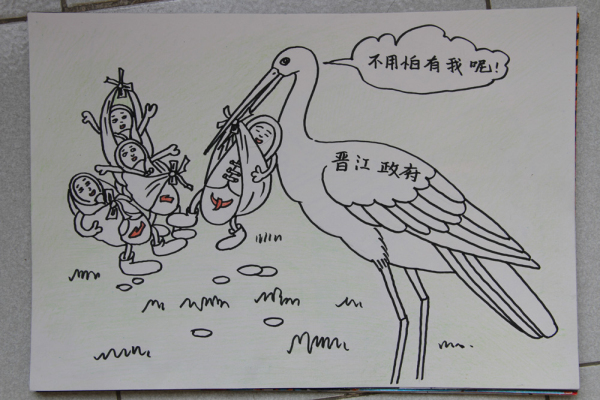 不用怕有我呢!
晋江政府